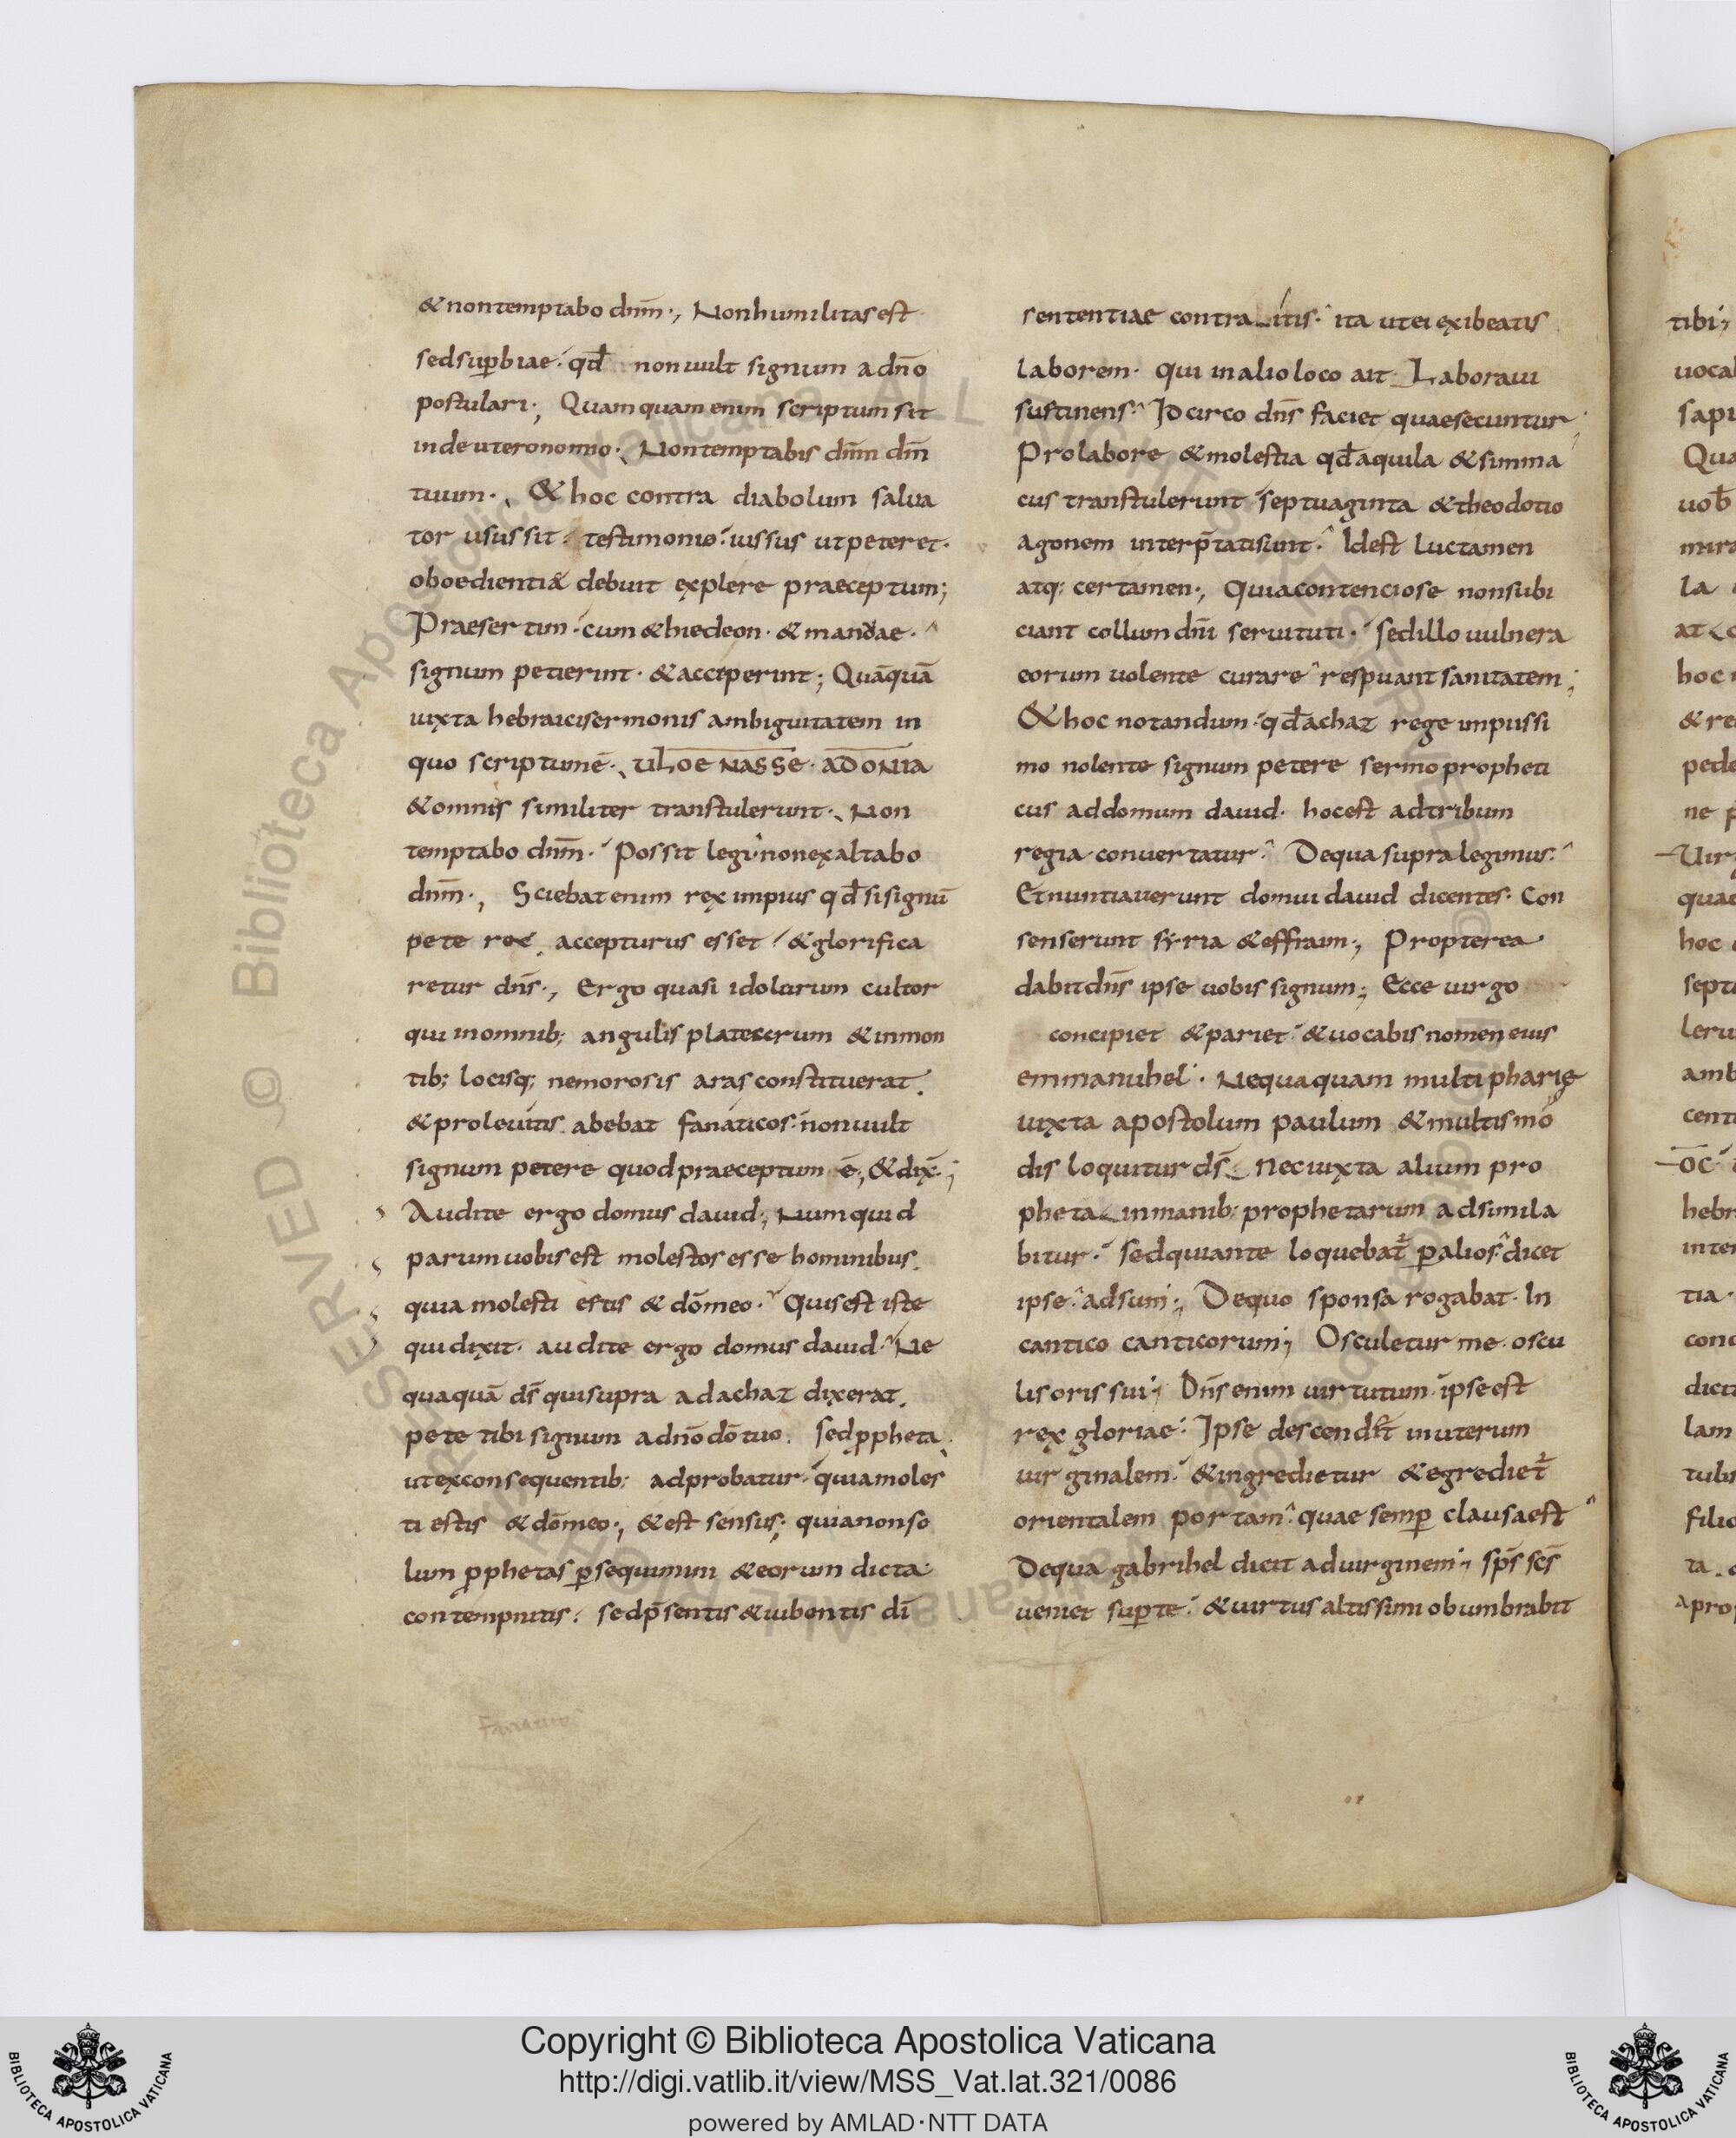 & nontemptabo dnm̄., Nonhumilitas est
sedsuꝑbiae. qđ nonuult signum adnō
postulari; Quamquam enim scriptum sit
indeuteronomio. Nontemptabis dnm̄ dm̄
tuum. & hoc contra diabolum salua
tor usus sit. testimonio. iussus utpeteret.
oboedientiae debuit explere praeceptum;
Praesertim. cum & hiedeon. & manuae.
signum petierint. & acceperint; Quāquā
iuxta hebraicisermonis ambiguitatem in
quo scriptumē. ULOE NASSE. ADONIA
& omnis similiter transtulerunt. Non
temptabo dnm̄. Possit legi nonexaltabo
dnm̄., Sciebat enim rex impius qđ sisignū
petere accepturus esset & glorifica
retur dns̄., Ergo quasi idolorum cultor
qui inomnib; angulis platearum & inmon
tib; locisq; nemorosis aras constituerat.
& proleuitis abebat fanaticos. nonuult
signum petere quodpraeceptum ē; & dix̄.;
Audite ergo domus dauid; Numquid
parumuobisest molestos esse hominibus.
quia molesti estis & dō meo. Quisest iste
quidixit. audite ergo domus dauid. Ne
quaquā ds̄ quisupra adachaz dixerat.
pete tibi signum adnō dō tuo. sedꝓpheta.
utexconsequentib; adprobatur. quiamoles
ti estis & dō meo., & est sensus; quianonso
lum ꝓphetas ꝑsequimini & eorum dicta
contempnitis. sedp̄sentis & iubentis dī
sententiae contraitis. ita utei exibeatis
laborem. qui inalioloco ait. Laboraui
sustinens. Idcirco dns̄ faciet quaesecuntur;
Prolabore & molestia qđ aquila & simma
cus transtulerunt septuaginta & theodotio
agonem interp̄tatisunt. Idest luctamen
atq; certamen., Quiacontenciose nonsubi
ciant collum dnī seruituti. sedillo uulnera
eorum uolente curare respuant sanitatem;
& hoc notandum. qđ achaz rege impiissi
mo nolente signum petere sermo propheti
cus addomum dauid. hocest adtribum
regia conuertatur. Dequa supra legimus.
Et nuntiauerunt domui dauid dicentes. Con
senserunt syria & effraim., Propterea
dabit dns̄ ipse uobis signum; Ecce uirgo
concipiet & pariet. & uocabis nomen eius
emmanuhel. Nequaquam multipharie
iuxta apostolum paulum & multis mo
dis loquitur ds̄. Neciuxta alium pro
pheta inmanib; prophetarum adsimila
bitur. sedquiante loquebat̄ ꝑalios. dicet
ipse. adsum., Dequo sponsa rogabat. In
cantico canticorum; Osculetur me. oscu
lis oris sui; Dns̄ enim uirtutum. ipse est
rex gloriae. Ipse descendet inuterum
uirginalem. & ingredietur & egrediet̄
orientalem portam. quae semꝑ clausaest
Dequa gabrihel dicit aduirginem; sps̄ scs̄
ueniet suꝑte. & uirtus altissimi obumbrabit